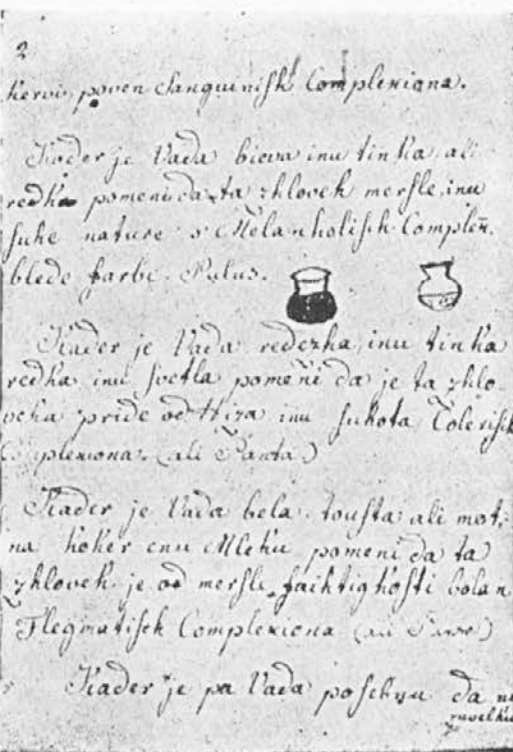 2
kervi, poven Sanguinish Complexiona.
Kader je Vada bieva inu tinka, ali
redka pomeni da ta zhlovek mersle, inu
suhe nature s Melanholish Complex.
blede farbe.
Kader je Vada redezka, inu tinka
redka inu svetla pomeni da je ta zhlo-
veka pride od inu suhota Colerish
Complexiona (ali
Kader je Vada bela, tousta ali mot-
na koker enu Mleku pomeni da ta
zhlovek je od mersle faihtighosti bolan
Flegmatish Complexiona (ali
Kader je pa Vada posebnu da